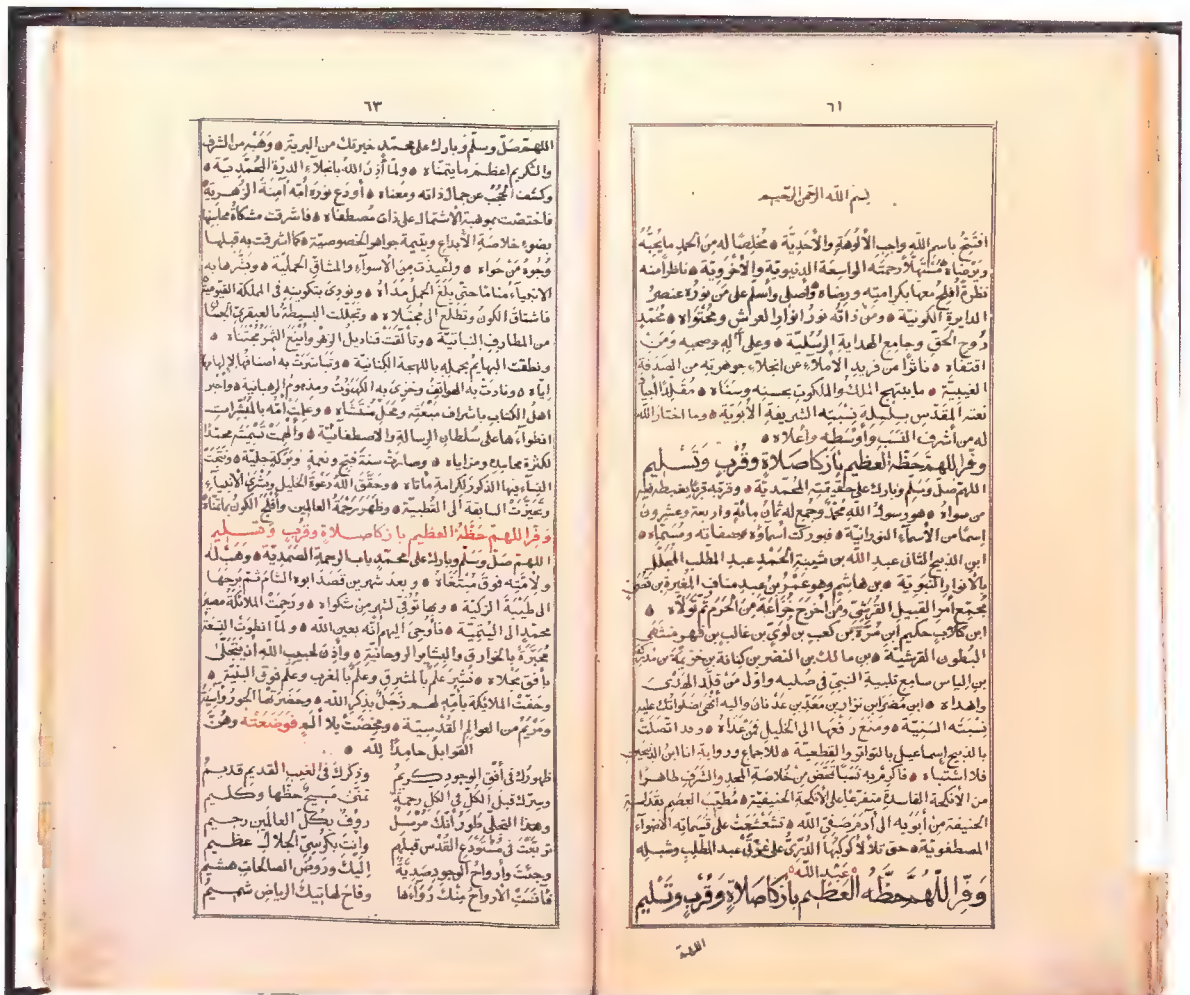 ٦١
بسم الله الرحمن الرحيم
افتتح باسم الله واجب الألوهة والأحدية ۞ مخلصا له من الحمد ما يحبه
ويرضاه ۞ مستهلا رحمته الواسعة الدنيوية والأخروية ۞ ناظرا منه
نظرة أفلح معها بكرامته ورضاه ۞ وأصلي وأسلم على من نوره عنصر
الدايرة الكونية ۞ ومن ذاته نور انوار العرش ومحتواه ۞ محمد
روح الحق وجامع الهداية الرسلية ۞ وعلى آله وصحبه ومن
اقتفاه ۞ ناثرا من فريد الأملاء عن انجلاء جوهريته من الصدفة
الغيبية ۞ ما يبتهج الملك والملكوت بحسنه وسناه ۞ مقلدا أجياد
نعته المقدس بسلسلة نسبته الشريفة الأبوية ۞ وما اختار الله
له من أشرف النسب وأوسطه وأعلاه ۞
وفر اللهم حظه العظيم بازكا صلاة وقرب وتسليم
اللهم صل وسلم وبارك على حقيقته المحمدية ۞ وقربه قربا يغبطه فيه
من سواه ۞ هو رسول الله محمد وجمع له ثمان مائة واربعة وعشرون
إسما من الأسماء النورانية ۞ فبوركت أسماؤه وصفاته ومسماه ۞
ابن الذبيح الثاني عبد الله بن شيبة الحمد عبد المطلب المجلل
بالأنوار النبوية ۞ بن هاشم وهو عمرو بن عبد مناف المغيرة بن قصي
مجمع امر القبيل القرشي ومن أخرج خزاعة من الحرم ثم تولاه ۞
ابن كلاب حكيم ابن مرة بن كعب بن لوي بن غالب بن فهر منتهى
البطون القرشية ۞ بن مالك بن النضر بن كنانة بن خزيمة بن مدركة
بن الياس سامع تلبية النبي في صلبه واول من قلد الهدى
واهداه ۞ ابن مضر ابن نزار بن معد بن عدنان واليه أنهى صلواتك عليه
نسبته السنية ۞ ومنع رفعها الى الخليل فمن عداه ۞ وقد اتصلت
بالذبيح إسماعيل بالتواتر والقطعية ۞ للاجماع ورواية انا ابن الذبيحين
فلا اشتباه ۞ فاكرم به نسبا تمحض من خلاصة المجد والشرف طاهرا
من الأنكحة الفاسدة متفرعا على الأنكحة الحنيفية ۞ مطيب العصم بقداسة
الحنيفة من أبويه الى آدم صفي الله ۞ تشعشعت على قسماته الأضواء
المصطفوية ۞ حتى تلألأ كوكبها الدري على غرتي عبد المطلب وشبله
۞ عبد الله ۞
وفر اللهم حظه العظيم بازكا صلاة وقرب وتسليم
اللهم
٦٣
اللهم صل وسلم وبارك على محمد خيرتك من البرية ۞ وهبه من الشرف
والتكريم اعظم ما يتمناه ۞ ولما أذن الله بانجلاء الدرة المحمدية ۞
وكشف الحجب عن جمال ذاته ومعناه ۞ أودع نوره أمه آمنة الزهرية
فاختصت بموهبة الاشتمال على ذات مصطفاه ۞ فاشرقت مشكاة محاسنها
بضوء خلاصة الأبداع ويتيمة جواهر الخصوصية ۞ كما اشرقت به قبلها
وجوه من حواه ۞ واعيذت من الاسواء والمشاق الحملية ۞ وبشرها به
الانبياء مناما حتى بلغ الحمل مداه ۞ ونودى بتكوينه في المملكة القيومية
فاشتاق الكون وتطلع الى مجتلاه ۞ وتجللت البسيطة بالعبقري الحسان
من المطارف النباتية ۞ وتألقت قناديل الزهر وأينع الثمر مجتناه ۞
ونطقت البهايم بحمله باللهجة الكنانية ۞ وتباشرت به أصنافها لإلهامها
اياه ۞ ونادت به الهواتف وخزى به الكهنوت ومذموم الرهبانية ۞ وأخبر
اهل الكتاب باشراف مبعثه ومحل منشاه ۞ وعلمت امه بالمبشرات
انطواءها على سلطان الرسالة والاصطفائية ۞ وألهمت تسميته محمدا
لكثرة محامده ومزاياه ۞ وصارت سنة فتح ونعمة وبركة جلية ۞ ونتجت
النساء فيها الذكور لكرامة مأتاه ۞ وحقق الله دعوة الخليل وبشرى الأنبياء
ونجزت السابقة الى القطبية ۞ وظهر رحمة العالمين وأفلح الكون بما تمناه
وفر اللهم حظه العظيم بازكا صلاة وقرب وتسليم
اللهم صل وسلم وبارك على محمد باب الرحمة الصمدية ۞ وهب له
ولأمته فوق مبتغاه ۞ وبعد شهرين قصد ابوه الشام ثم يرجها
الى طيبة الزكية ۞ وبها توفى لشهر من شكواه ۞ ورحمت الملائكة مصير
محمد الى اليتمية ۞ فأوحى اليهم أنه بعين الله ۞ ولما انطوت التسعة
مخبرة بالخوارق والبشاير الروحانية ۞ وأذن لحبيب الله أن يتجلى
بأفق مجلاه ۞ نشر علم بالمشرق وعلم بالمغرب وعلم فوق البنية ۞
وحفت الملائكة بأمه لهم زجل بذكر الله ۞ وحضرتها الحور وآسية
ومريم من العوالم القدسية ۞ ومخضت بلا ألم فوضعته وهوت
القوابل حامدا لله ۞
ظهورك في أفق الوجود كريم وذكرك في الغيب القديم قديم
وسرك قبل الكل في الكل رحمة تمنى مسيح حظها وكليم
وهذا التجلى طور أنك مرسل روف بكل العالمين رحيم
تربعت في مستودع القدس قبلهم وانت بكرسي الجلال عظيم
وجئت وأرواح الوجود صدية إليك وروض الصالحات هشيم
فآنست الأرواح منك دواءها وفاح لهاتيك الرياض شميم